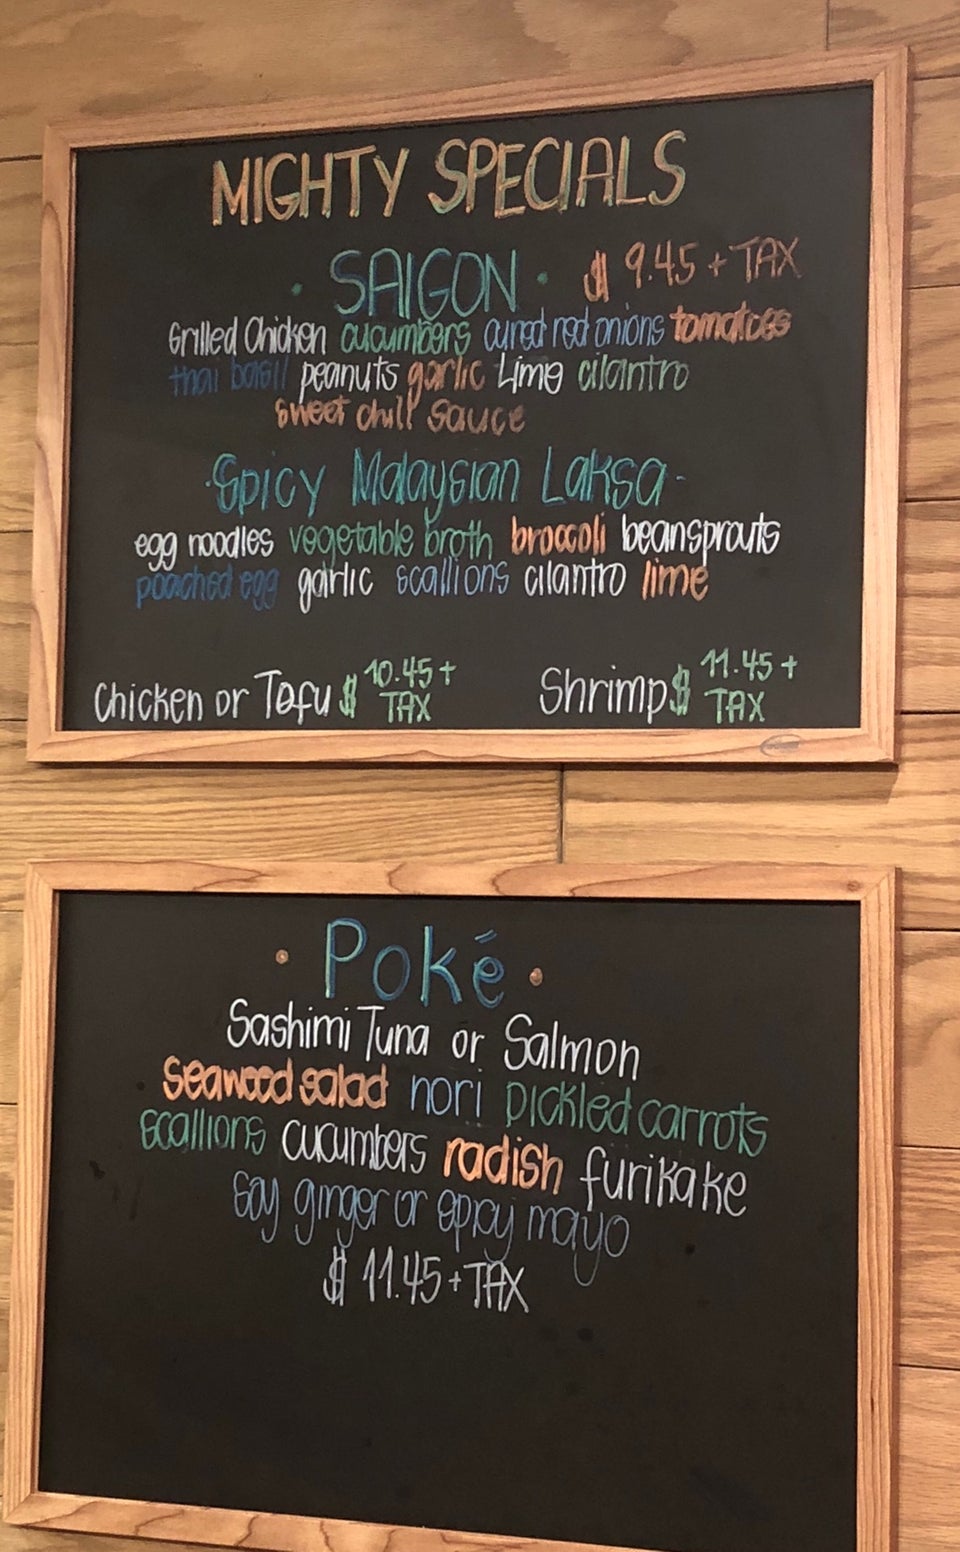 MIGHTY SPECIALS
· SAIGON · $ 9.45 + TAX
Grilled Chicken cucumbers cured red onions tomatoes
thai basil peanuts garlic Lime cilantro
sweet chili sauce
·Spicy Malaysian Laksa·
egg noodles vegetable broth broccoli beansprouts
poached egg garlic scallions cilantro lime
Chicken or Tofu $ 10.45 + TAX Shrimp $ 11.45 + TAX
· Poké ·
Sashimi Tuna or Salmon
Seaweed salad nori pickled carrots
scallions cucumbers radish furikake
soy ginger or spicy mayo
$ 11.45 + TAX